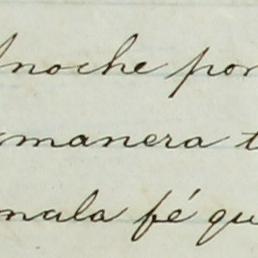 Anoche por
manera t
mala fé qu